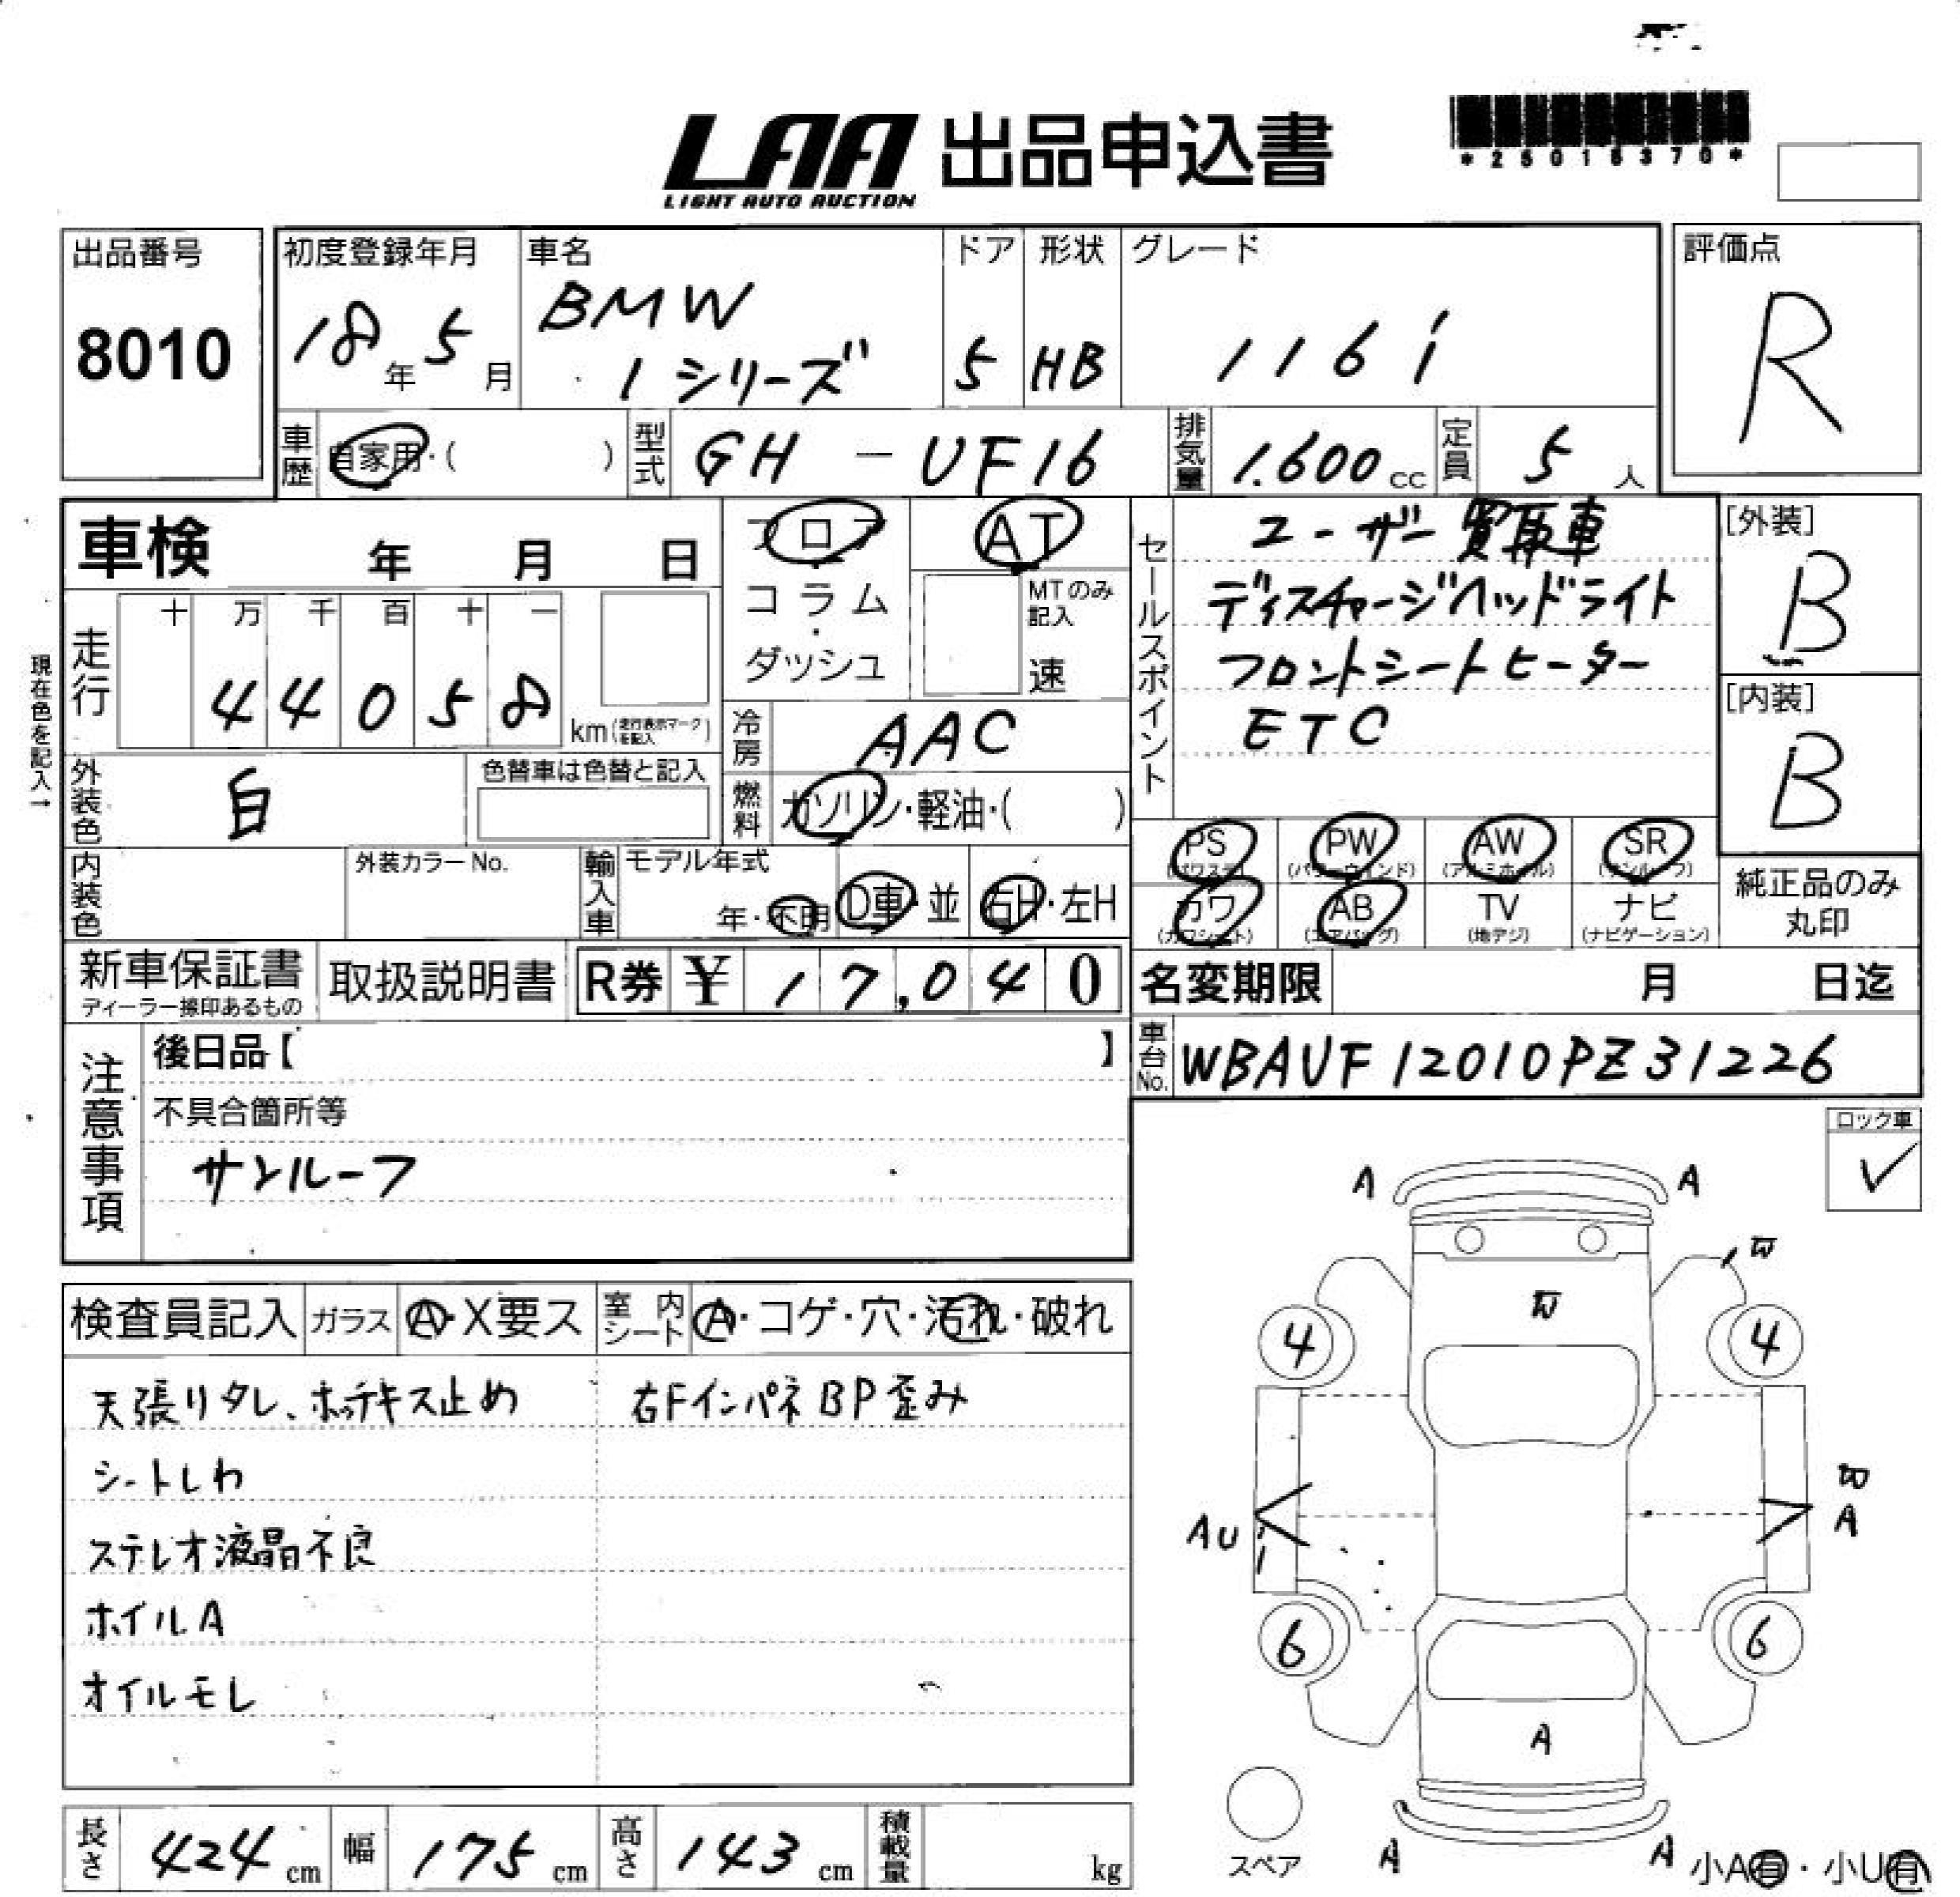 LAA 出品申込書
LIGHT AUTO AUCTION
*25015370*
出品番号
8010
初度登録年月
18年 5月
車名
BMW
1シリーズ
ドア
5
形状
HB
グレード
116i
評価点
R
車歴 自家用・( )
型式 GH-UF16
排気量 1.600cc
定員 5人
車検 年 月 日
フロア
コラム
・
ダッシュ
AT
MTのみ記入
速
セールスポイント
ユーザー買取車
ディスチャージヘッドライト
フロントシートヒーター
ETC
[外装]
B
[内装]
B
現在色を記入→
走行
十 万 千 百 十 一
4 4 0 5 8
km(走行表示マークを記入)
冷房 AAC
燃料 ガソリン・軽油・( )
外装色 白
色替車は色替と記入
内装色
外装カラーNo.
輸入車 モデル年式
年・不明 D車・並 右H・左H
PS (パワステ)
PW (パワーウインド)
AW (アルミホイル)
SR (サンルーフ)
カワ (カワシート)
AB (エアバッグ)
TV (地デジ)
ナビ (ナビゲーション)
純正品のみ
丸印
新車保証書
ディーラー捺印あるもの
取扱説明書
R券 ¥ 17,040
名変期限 月 日迄
車台No. WBAUF12010PZ31226
注意事項
後日品【 】
不具合箇所等
サンルーフ
ロック車
✓
検査員記入 ガラス A・X要ス
室内シート A・コゲ・穴・汚れ・破れ
天張りタレ、ホッチキス止め
シートしわ
ステレオ液晶不良
ホイルA
オイルモレ
右FインパネBP歪み
A A
W
W
4 4
B
A
AU1
6 6
A
スペア
A A
小A有・小U有
長さ 424cm
幅 175cm
高さ 143cm
積載量 kg